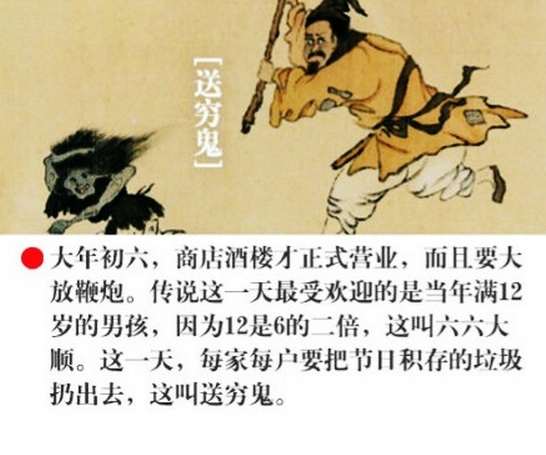 [送穷鬼]
大年初六，商店酒楼才正式营业，而且要大
放鞭炮。传说这一天最受欢迎的是当年满12
岁的男孩，因为12是6的二倍，这叫六六大
顺。这一天，每家每户要把节日积存的垃圾
扔出去，这叫送穷鬼。